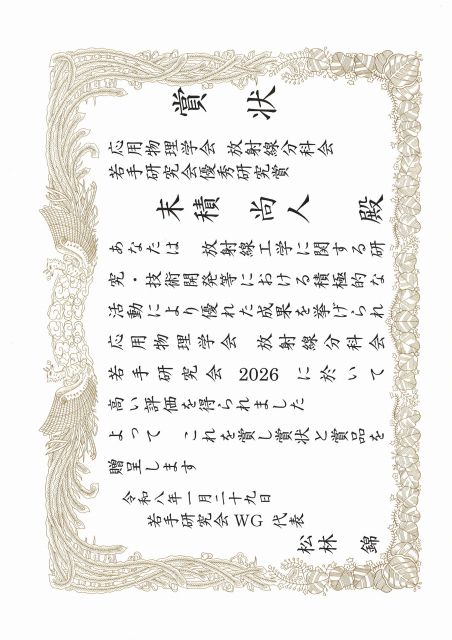 賞状
応用物理学会 放射線分科会
若手研究会優秀研究賞
末積 尚人 殿
あなたは 放射線工学に関する研
究・技術開発等における積極的な
活動により優れた成果を挙げられ
応用物理学会 放射線分科会
若手研究会 2026 に於いて
高い評価を得られました
よって これを賞し賞状と賞品を
贈呈します
令和八年一月二十九日
若手研究会WG 代表
松林 錦